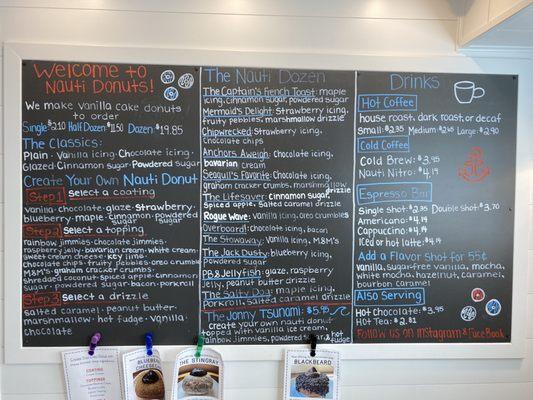 Welcome to
Nauti Donuts!
We make vanilla cake donuts
to order
Single: $3.10 Half Dozen: $11.50 Dozen: $19.85
The Classics:
Plain · Vanilla icing · Chocolate icing ·
Glazed · Cinnamon sugar · Powdered sugar
Create Your Own Nauti Donut
Step 1 select a coating
vanilla · chocolate · glaze · strawberry ·
blueberry · maple · cinnamon sugar · powdered sugar
Step 2 select a topping
rainbow jimmies · chocolate jimmies ·
raspberry jelly · bavarian cream · white cream ·
sweet cream cheese · key lime ·
chocolate chips · fruity pebbles · oreo crumbles
M&M's · graham cracker crumbs ·
shredded coconut · spiced apple · cinnamon
sugar · powdered sugar · bacon · porkroll
Step 3 select a drizzle
salted caramel · peanut butter ·
marshmallow · hot fudge · vanilla ·
chocolate
The Nauti Dozen
The Captain's French Toast: maple
icing, cinnamon sugar, powdered sugar
Mermaid's Delight: Strawberry icing,
fruity pebbles, marshmallow drizzle
Chipwrecked: Strawberry icing,
Chocolate chips
Anchors Aweigh: Chocolate icing,
bavarian cream
Seagull's Favorite: Chocolate icing,
graham cracker crumbs, marshmallow drizzle
The Lifesaver: cinnamon sugar,
spiced apple, salted caramel drizzle
Rogue Wave: vanilla icing, oreo crumbles
Overboard!: chocolate icing, bacon
The Stowaway: vanilla icing, M&M's
The Jack Dusty: blueberry icing,
powdered sugar
PB & Jellyfish: glaze, raspberry
jelly, peanut butter drizzle
The Salty Dog: maple icing,
porkroll, salted caramel drizzle
The Jonny Tsunami: $5.95
create your own nauti donut
topped with vanilla ice cream,
rainbow jimmies, powdered sugar, hot fudge
Drinks
Hot Coffee
house roast, dark roast, or decaf
Small: $2.35 Medium $2.45 Large: $2.90
Cold Coffee
Cold Brew: $3.95
Nauti Nitro: $4.19
Espresso Bar
Single shot: $2.35 Double shot: $3.70
Americano: $4.19
Cappuccino: $4.19
Iced or hot latte: $4.19
Add a Flavor Shot for 55¢
vanilla, sugar-free vanilla, mocha,
white mocha, hazelnut, caramel,
bourbon caramel
Also Serving
Hot Chocolate: $3.95
Hot Tea: $2.81
Follow us on Instagram & Facebook
COATING
TOPPINGS
BLUEBERRY
CHEESECAKE
THE STINGRAY
BLACKBEARD